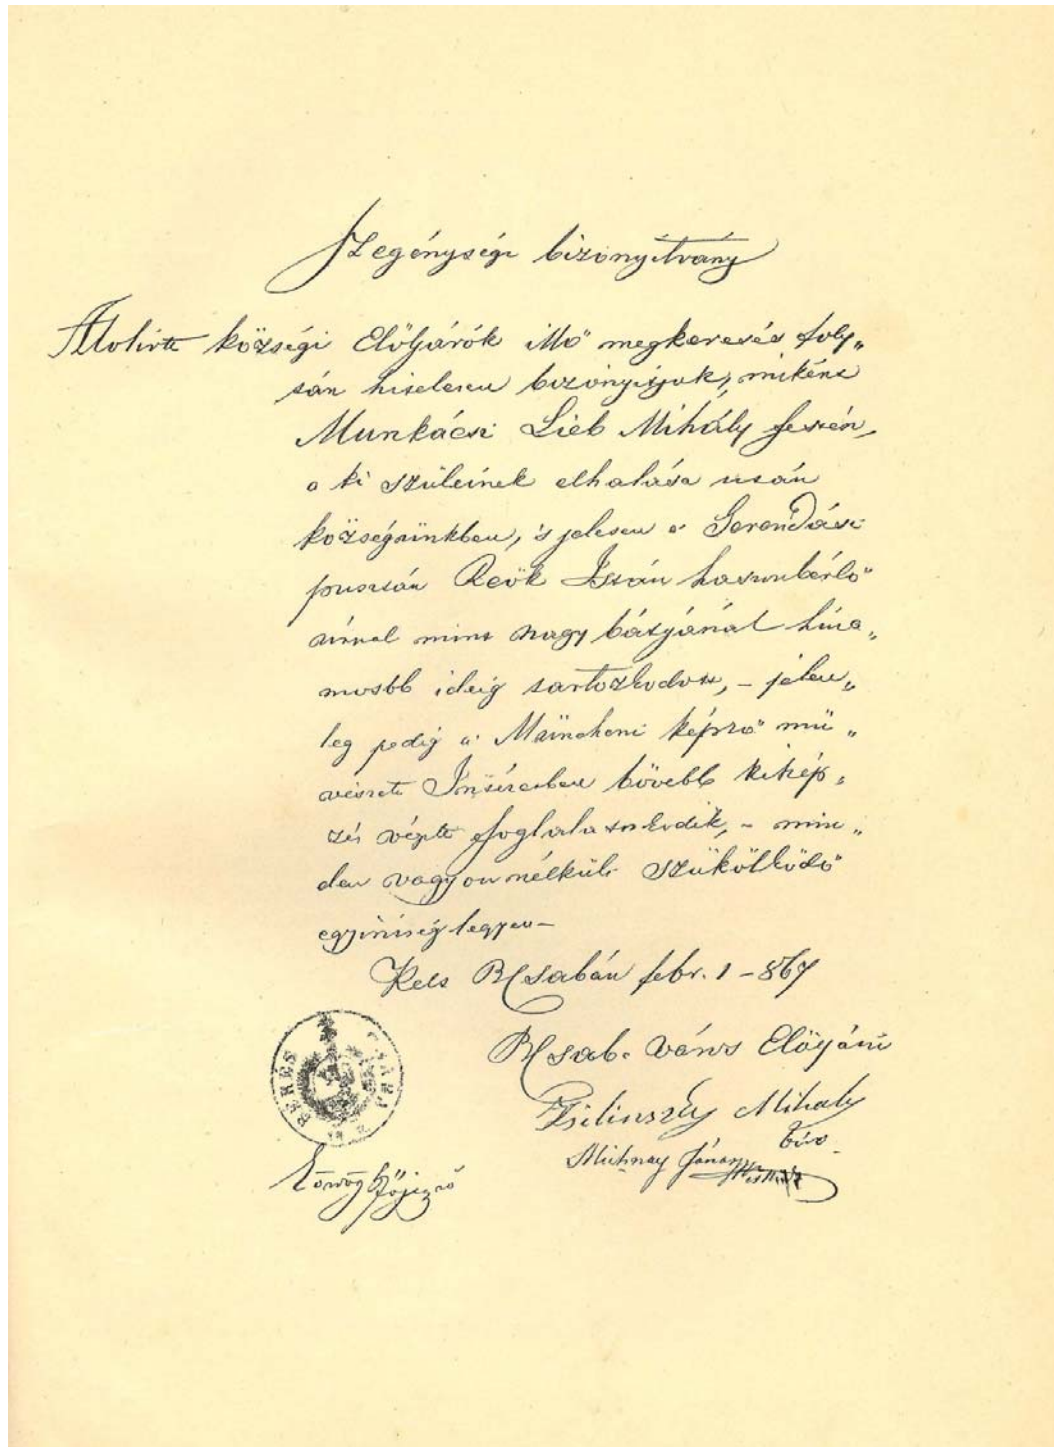 Szegénységi bizonyítvány
Alolirtt községi Elöljárók illő megkeresés foly„
tán hitelesen bizonyitjuk, miként
Munkácsi Lieb Mihály festén,
a ki szüleinek elhalása után
községünkben, 's jelesen a Gerendási
pusztán Reök István haszonbérlő
úrnal mint nagy bátyjánál húza„
mosbb ideig tartozkodott, – jelen„
leg pedig a Müncheni képző mü„
vészeti Intézetben bővebb kikép„
zés végett foglalatoskodik, – min„
den vagyon nélküli szükölködő
egyéniség legyen –
Kelt BCsabán febr. 1 – 867
BCsab. Város Elöljárói
BÉKÉS
Zsilinszky Mihaly
biro
Michnay János
főjegyző